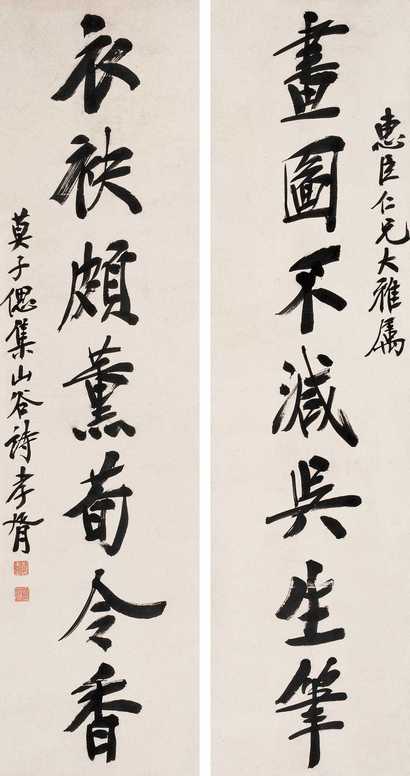 惠臣仁兄大雅属
畫圖不減吳生筆
衣袂頗薰荀令香
莫子偲集山谷詩孝胥